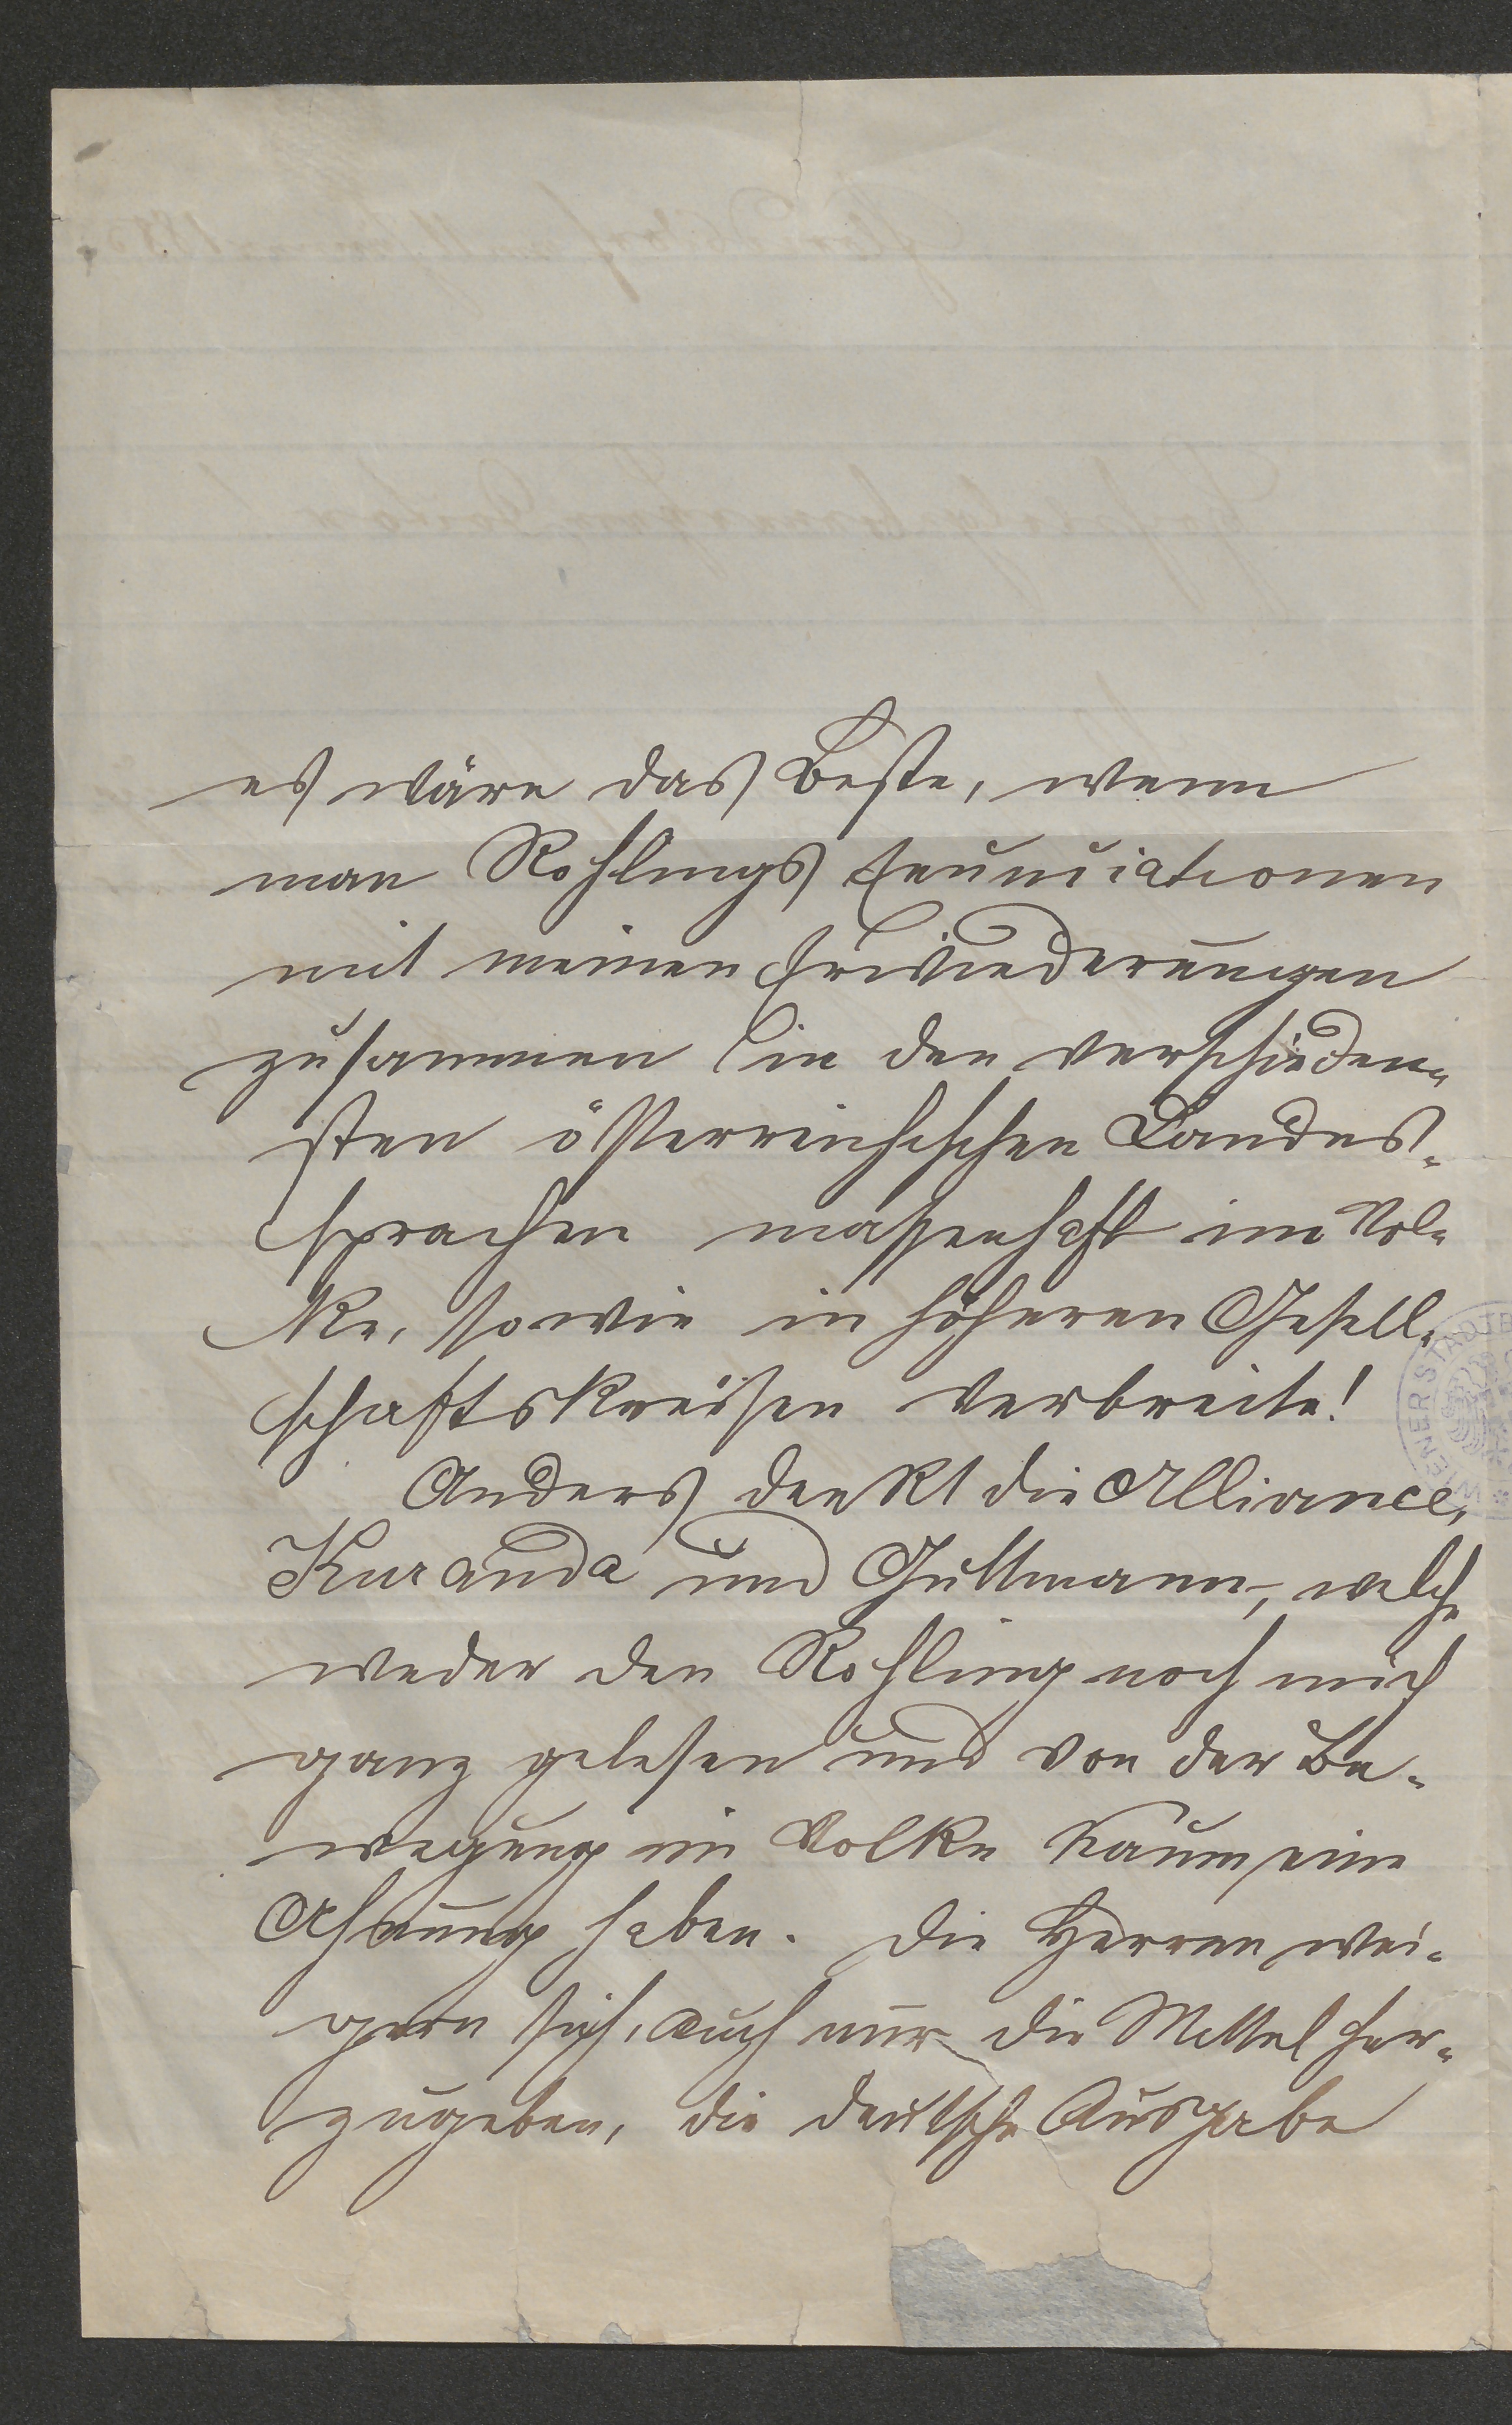 es wäre das Beste, wenn
man Rohlings Enunciationen
mit meinen Erwiederungen
zusammen in den verschieden-
sten österreichischen Landes-
sprachen massenhaft im Vol-
ke, sowie in höheren Gesell-
schaftskreisen verbreite!
Anders denkt die Alliance,
Kuranda und Guttmann, welche
weder den Rohling noch mich
ganz gelesen und von der Be-
wegung im Volke kaum eine
Ahnung haben. Die Herren wei-
gern sich, auch nur die Mittel her-
zugeben, die deutsche Ausgabe
WIENER STADTB